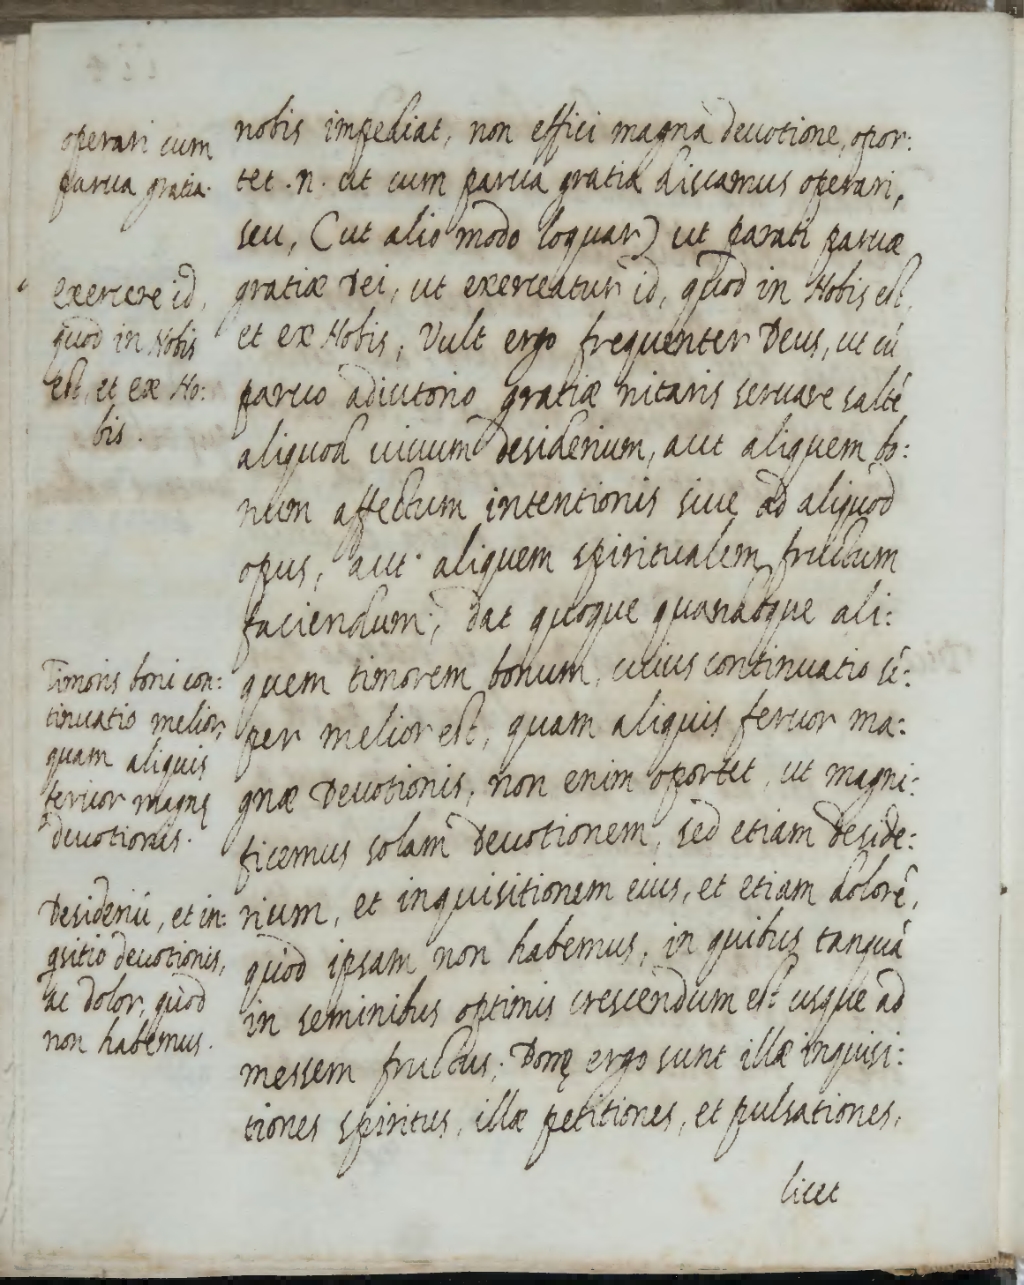 operari cum
parua gratia.
exercere id,
quod in Nobis
est, et ex No:
bis.
Timoris boni con:
tinuatio melior,
quam aliquis
feruor magnę
deuotionis.
Desiderii, et in:
qsitio deuotionis,
ac dolor, quod
non habemus.
nobis impediat, non effici magna deuotione, opor:
tet .n. ut cum parua gratia discamus operari,
seu, (ut alio modo loquar) ut parati paruæ
gratiæ Dei, ut exerceatur id, quod in Nobis est,
et ex Nobis, Vult ergo frequenter Deus, ut cũ
paruo adiutorio gratiæ nitaris seruare saltẽ
aliquod uiuum desiderium, aut aliquem bo:
num affectum intentionis siue ad aliquod
opus, aut aliquem spiritualem fructum
faciendum; dat quoque quandoque ali:
quem timorem bonum, cuius continuatio sẽ:
per melior est, quam aliquis feruor ma:
gnæ Deuotionis, non enim oportet, ut magni:
ficemus solam Deuotionem, sed etiam deside:
rium, et inquisitionem eius, et etiam dolorẽ,
quod ipsam non habemus, in quibus tanquã
in seminibus optimis crescendum est usque ad
messem fructus; Bonę ergo sunt illæ inquisi:
tiones spiritus, illæ petitiones, et pulsationes,
licet